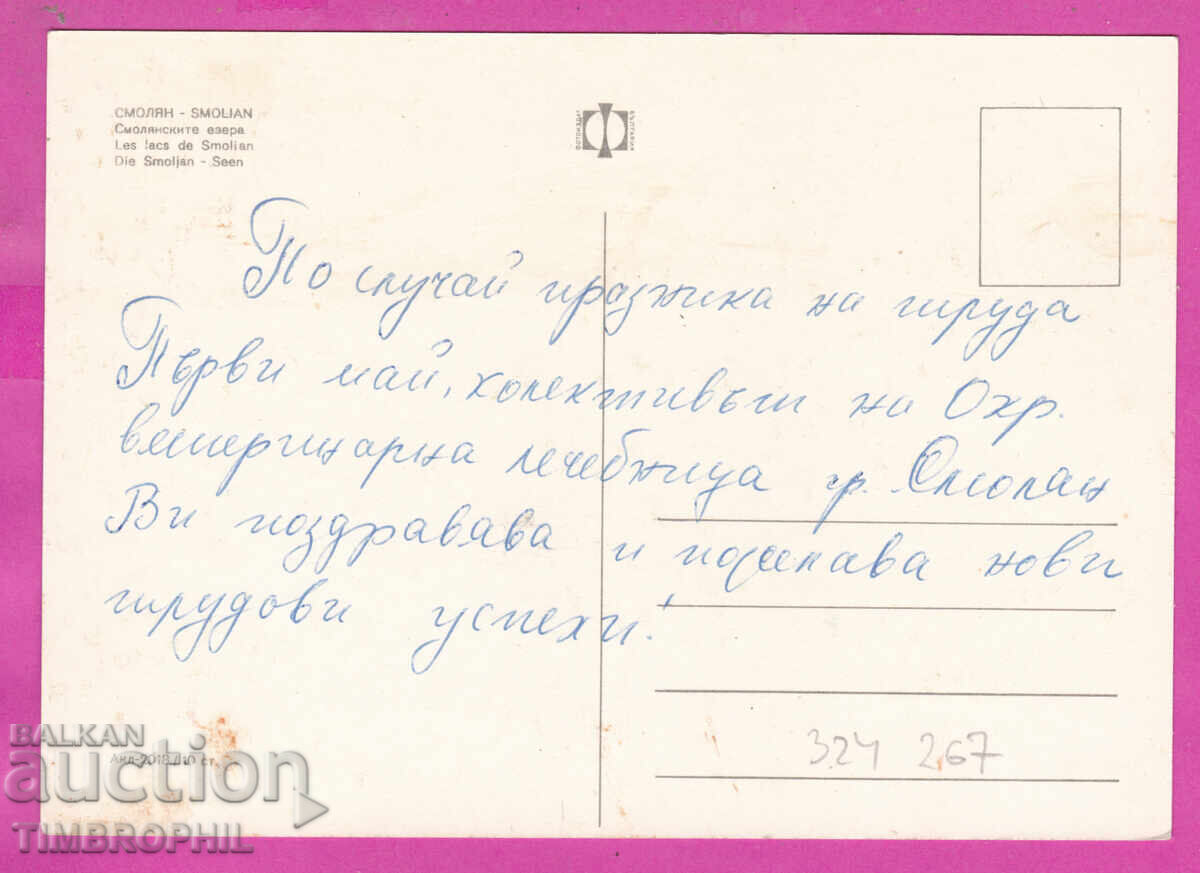 СМОЛЯН - SMOLIAN
Смолянските езера
Les lacs de Smolian
Die Smoljan - Seen
ФОТОИЗДАТ
БЪЛГАРИЯ
По случай празника на труда
Първи май, колективът на Окр.
ветеринарна лечебница гр. Смолян
Ви поздравява и пожелава нови
трудови успехи!
324 267
Акл-2018/10 ст.
BALKAN
auction
TIMBROPHIL